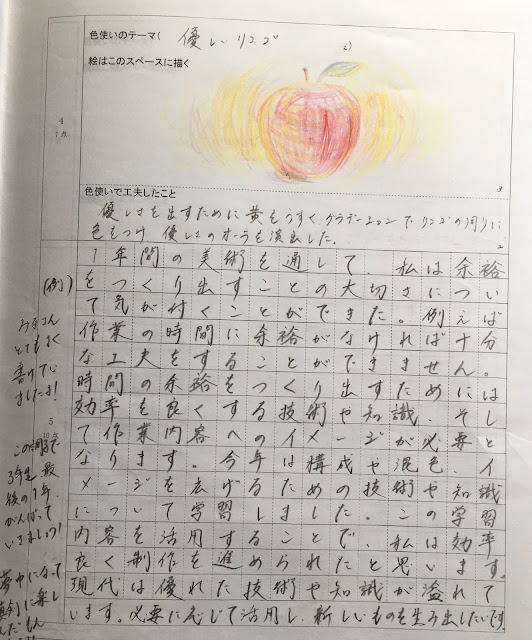 色使いのテーマ( 優しいリンゴ
2)
絵はこのスペースに描く
4
色使いで工夫したこと
3
優しさを出すために黄をうすくグラデーションでリンゴの周りに
色をつけ優しさのオーラを演出した。
2
1年間の美術を通して、私は余裕
をつくり出すことの大切さについ
て気が付くことができた。例えば
作業の時間に余裕がなければ十分
な工夫をすることができません。
時間の余裕をつくり出すためには
効率を良くする技術や知識、そし
て作業内容へのイメージが必要と
なります。今年は構成や混色、イ
メージを広げるための技術や知識
について学習しました。この学習
内容を活用することで、私は効率
良く制作を進められたと思います。
現代は優れた技術や知識が溢れて
います。必要に応じて活用し、新しいものを生み出したいです。
(例)
みなさん
とてもよく
書けてい
ましたよ!
5
この調子で
3年生最
後の1年、
がんばって
いきましょう!
夢中になって
真剣に楽し